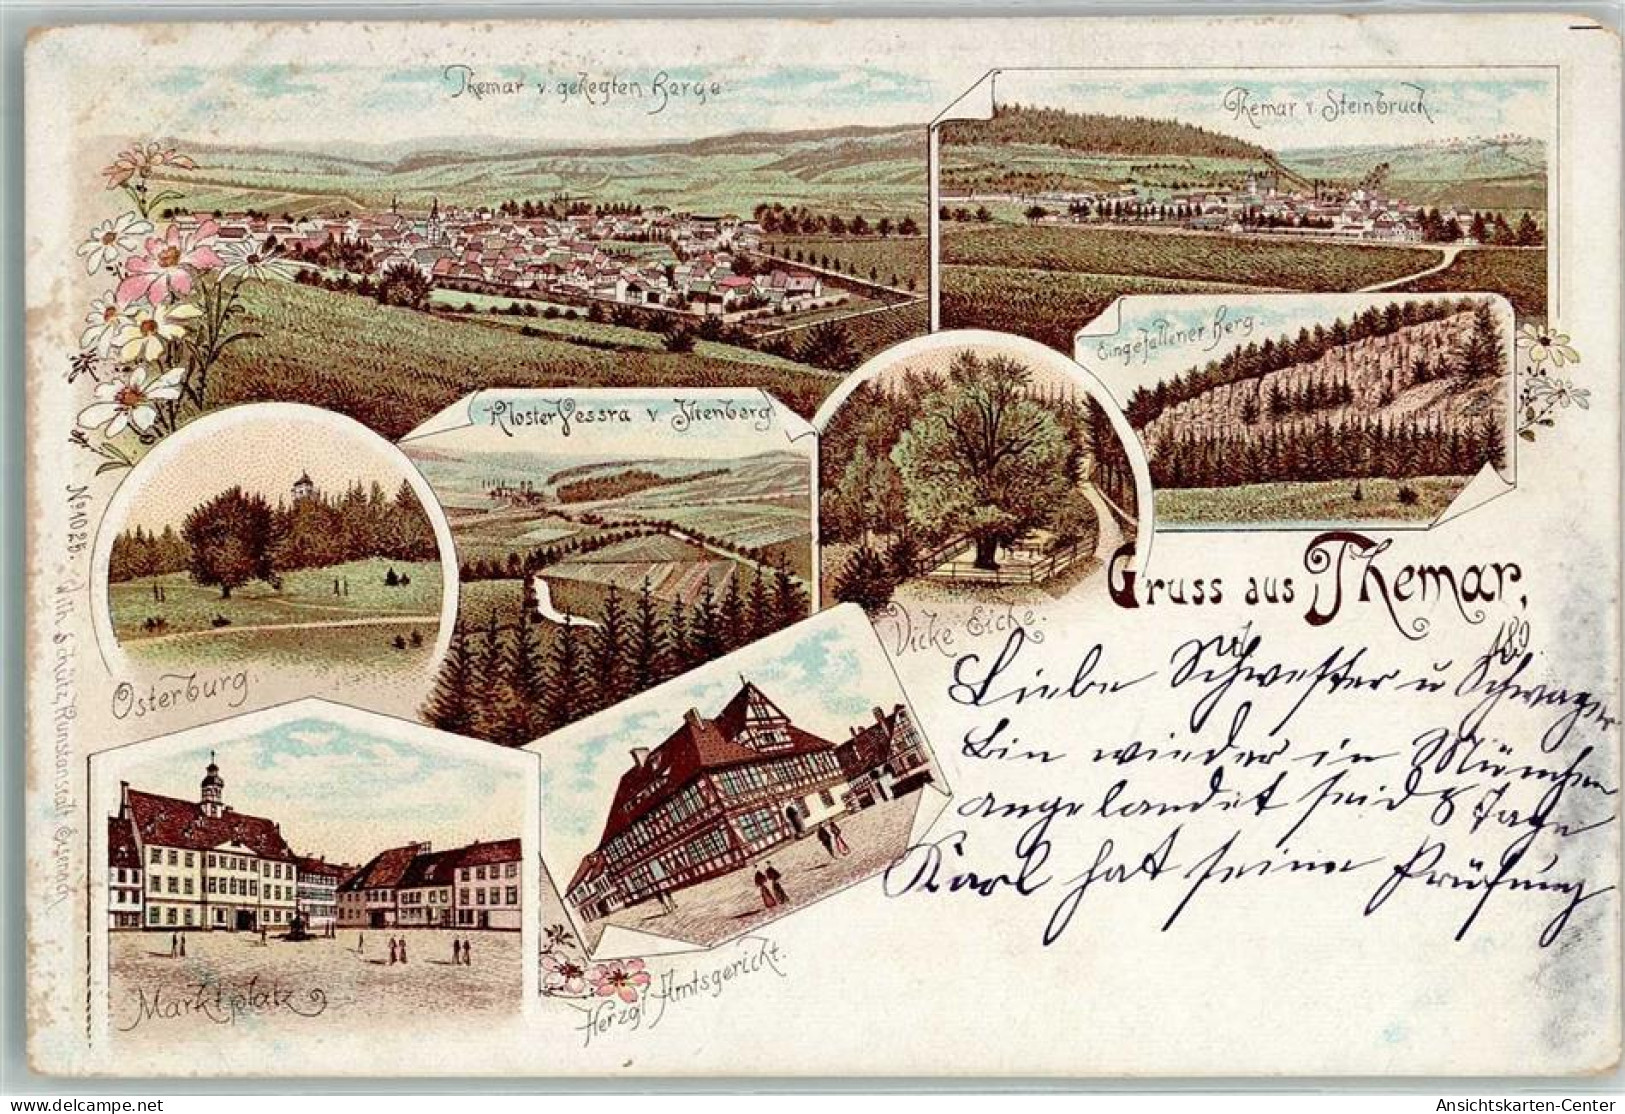 Themar v. gehegten Berge.
Themar v. Steinbruch.
Eingefallener Berg.
Kloster Vessra v. Ittenberg
Dicke Eiche.
Osterburg.
Gruss aus Themar,
189
Liebe Schwester u Schwager
bin wieder in München
angelandet seid 8 Tage
Karl hat seine Prüfung
Marktplatz
Herzgl. Amtsgericht.
No 1025. Wilh. Schütz, Kunstanstalt Eisenach
delcampe.net
Ansichtskarten-Center